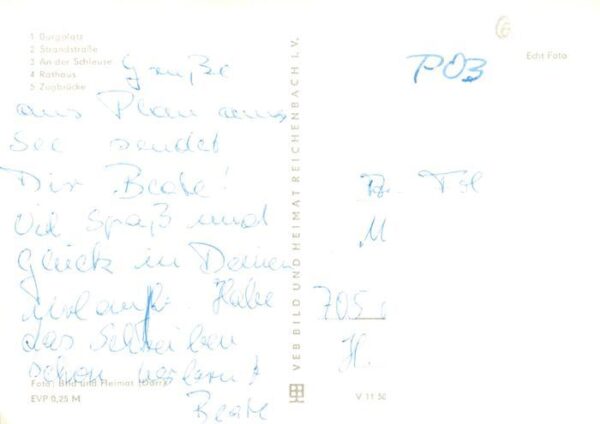 1 Burgplatz
2 Strandstraße
3 An der Schleuse
4 Rathaus
5 Zugbrücke
Grüße
aus Plau am
See sendet
Dir Beate!
Viel Spaß und
Glück in Deinen
Urlaub. Habe
das Schreiben
schon verlernt
Beate
Foto: Bild und Heimat (Darr)
EVP 0,25 M
VEB BILD UND HEIMAT REICHENBACH I. V.
V 11 50
Echt Foto
P03
M
705
H.